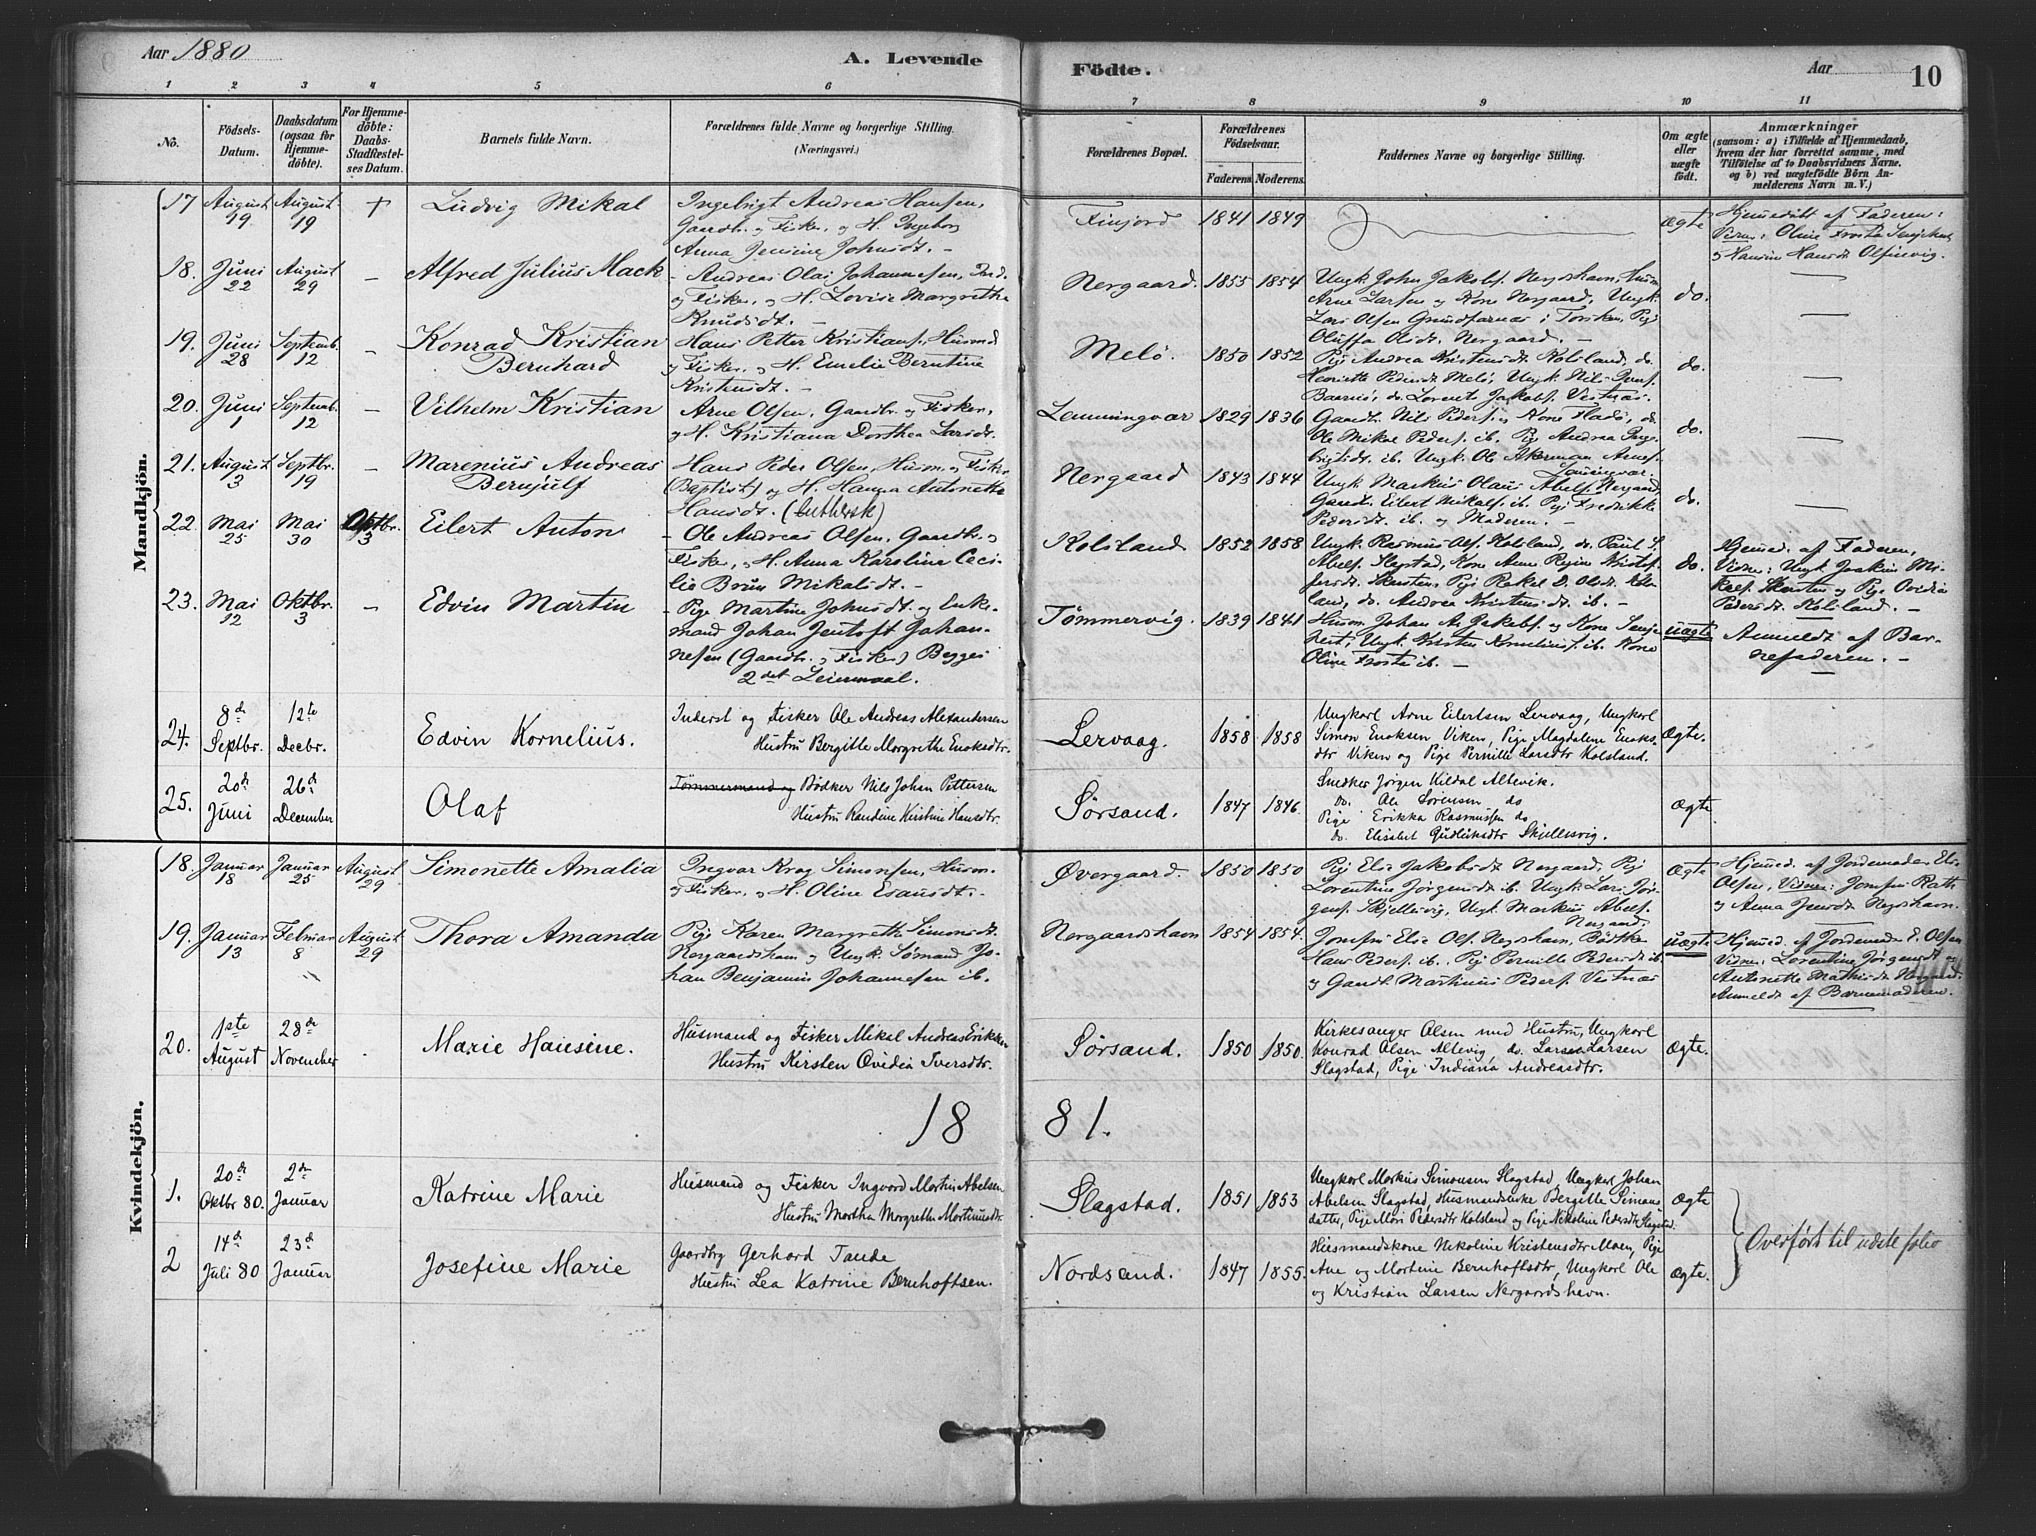 Aar 1880
A. Levende
Födte.
Aar
10
1 2 3 4 5 6 7 8 9 10 11
No.
Födsels-Datum.
Daabsdatum (ogsaa for Hjemme-döbte).
For Hjemme-döbte: Daabs-Stadfæstel-ses Datum.
Barnets fulde Navn.
Forældrenes fulde Navne og borgerlige Stilling.
(Næringsvei.)
Forældrenes Bopæl.
Forældrenes Födselsaar.
Faderens. Moderens.
Faddernes Navne og borgerlige Stilling.
Om ægte eller uægte födt.
Anmærkninger
(saasom: a) i Tilfælde af Hjemmedaab,
hvem der har forrettet samme, med
Tilföielse af to Daabsvidners Navne,
og b) ved uægtefödte Börn An-
melderens Navn m. V.)
Mandkjön.
17 August 19 August 19 + Ludvig Mikal
Ingebrigt Andreas Hansen,
Gaardbr. og Fisker, og H. Ingeborg
Anna Jensine Johnsdt. –
Finjord 1841 1849 ægte
Hjemmedöbt af Faderen;
Vidner: Oline Froste Senjehest
og Hansin Hansdt. Olfinevig.
18. Juni 22 August 29 – Alfred Julius Mack
– Andreas Olai Johannesen, Ind.
og Fisker, og H. Lovise Margrethe
Knudsdt. –
Nergaard. 1855 1854
Ungk. John Jakobs. Nergshavn, Husm.
Arne Larsen og Kone Nergaard, Ungk.
Lars Olsen Grundfarnes i Torsken, Pige
Oluffa Olsdt. Nergaard. –
do. –
19. Juni 28 Septemb. 12 – Konrad Kristian Bernhard
Hans Petter Kristians. Husmd
og Fisker, og H. Emelie Berntine
Kristensdt. –
Melö. 1850 1852
Pige Andrea Kristensdt. Kolsland, do.
Henriette Pedersdt. Melö, Ungk. Nils Jens.
Baarnes, do. Lorents Jakobs. Vestnæs.
do. –
20. Juni 1 Septemb. 12 – Vilhelm Kristian
Arne Olsen, Gaardbr. og Fisker,
og H. Kristiana Dorthea Larsdt.
Lemmingvær 1829 1836
Gaardb. Nils Peders. og Kone Fladö, do.
Ole Mikal Peders. ib. Pige Andrea Inge-
brigtsdt. ib. Ungk. Ole Akerman Arnes.
Lemingvær.
do. –
21. August 3 Septbr. 19 – Marenius Andreas Bernjulf
Hans Peder Olsen, Husm. og Fisker
(Baptist) og H. Hanna Antonette
Hansdt. (luthersk)
Nergaard 1843 1844
Ungk. Markus Olaus Abels. Nergaard,
Gaardb. Eilert Mikals. ib. Pige Fredrikke
Pedersdt. ib. og Moderen. –
do. –
22. Mai 25 Mai 30 Oktbr. 3 Eilert Anton
– Ole Andreas Olsen, Gaardbr. og
Fisker, og H. Anna Karoline Ceci-
lie Brun Mikalsdt. –
Kolsland 1852 1858
Ungk. Rasmus Ols. Kolsland, do. Paul S.
Abels. Slagstad, Kone Anne Regine Kristof-
fersdt. Skersten, Pige Rakel D. Olsdt. Kols-
land, do. Andrea Kristensdt. ib. –
do.
Hjemmed. af Faderen,
Vidner: Ungk. Joakim Mi-
kels. Skersten og Pige Ovidia
Pedersdt. Kolsland. –
23. Mai 12 Oktbr. 3 – Edvin Martin
– Pige Martine Johnsdt. og Enke-
mand Johan Jentoft Johan-
nesen (Gaardbr. og Fisker) Begges
2det Leiermaal.
Tömmervig. 1839 1841
Husm. Johan A. Jakobs. og Kone Senje-
hest, Ungk. Kristen Kornelius. ib. Kone
Oline Froste ib. –
uægte
Anmeldt af Bar-
nefaderen. –
24. 8de Septbr. 12te Decbr. Edvin Kornelius.
Inderst og Fisker Ole Andreas Alexandersen
Hustru Bergitte Margrethe Enoksdtr.
Lervaag. 1858 1858
Ungkarl Arne Eilertsen Lervaag, Ungkarl
Simon Enoksen Viken, Pige Magdalene Enoks-
dtr Viken og Pige Pernille Larsdtr Kolsland.
Ægte.
25. 20de Juni 26de December Olaf
Tömmermand og Bödker Nils Johan Pettersen
Hustru Randine Kristine Hansdtr.
Sörsand. 1847 1846
Snedker Jörgen Kildal Altevik.
do. Ole Sörensen do
Pige Erikka Rasmussen do
do. Elisabet Gudleiksdtr Skjellesvig.
Ægte.
Kvindekjön.
18. Januar 18 Januar 25 August 29 Simonette Amalia
Ingvar Krog Simonsen, Husm.
og Fisker, og H. Oline Esausdt. –
Övergaard. 1850 1850
Pige Elise Jakobsdt. Nergaard, Pige
Lorentine Jörgensdt. ib. Ungk. Lars Jör-
gens. Skjellesvig, Ungk. Markus Abels.
Nergaard.
Ægte
Hjemmed. af Jordemoder Elise
Olsen, Vidner: Josefine Rath
og Anna Jensdt. Nergshavn.
19. Januar 13 Februar 8 August 29 Thora Amanda
Pige Karen Margrethe Simonsdt.
Nergaardshavn og Ungk. Sömand Jo-
han Benjamin Johannesen ib.
Nergaardshavn 1854 1854.
Josefine Elise Ols. Nergshavn, Bödtker
Hans Peders. ib. Pige Pernille Pedersdt. ib.
og Gaardb. Martinus Peders. Vestnæs
uægte
Hjemmed. af Jordemoder E. Olsen
Vidner: Lorentine Jörgensdt. og
Antonette Mathisdt. Nergaard.
Anmeldt af Barnemoderen.
20. 1ste August 28de November Marie Hansine.
Husmand og Fisker Mikal Andreas Eriksen
Hustru Kirsten Ovidia Iversdtr.
Sörsand. 1850 1850.
Kirkesanger Olsen med Hustru, Ungkarl
Konrad Olsen Altevig, do. Larsen Larsen
Slagstad, Pige Indiana Andreasdtr.
Ægte.
1881.
1. 20de Oktbr 80. 2den Januar Katrine Marie
Husmand og Fisker Ingvard Martin Abelsen
Hustru Martha Margrethe Martinusdtr.
Slagstad. 1851 1853
Ungkarl Markus Simonsen Slagstad, Ungkarl Johan
Abelsen Slagstad, Husmandsenke Bergitte Simons-
datter, Pige Mari Pedersdtr Kolsland og Pige Nikoline Pedersdtr Slagstad.
Ægte
2 14de Juli 80 23de Januar Josefine Marie
Gaardbr Gerhard Tande
Hustru Lea Katrine Bernhoftsen.
Nordsand. 1847 1855.
Husmandskone Nikoline Kristensdtr Moen, Pige
Ane og Martine Bernhoftsdtr, Ungkarl Ole
og Kristian Larsen Nergaardshavn.
Ægte.
Overfört til næste folio